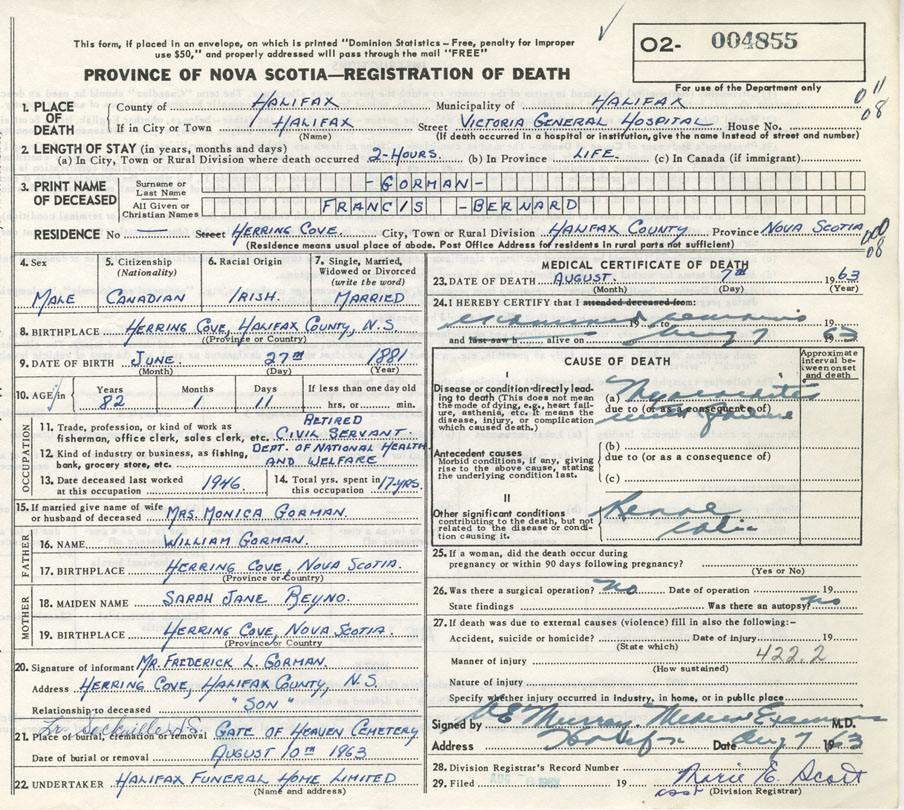 This form, if placed in an envelope, on which is printed "Dominion Statistics – Free, penalty for improper
use $50," and properly addressed will pass through the mail "FREE"
O2- 004855
PROVINCE OF NOVA SCOTIA—REGISTRATION OF DEATH
For use of the Department only
1. PLACE OF DEATH
County of HALIFAX Municipality of HALIFAX 011
If in City or Town HALIFAX Street VICTORIA GENERAL HOSPITAL House No. 08
(Name) (If death occurred in a hospital or institution, give the name instead of street and number)
2. LENGTH OF STAY (in years, months and days)
(a) In City, Town or Rural Division where death occurred 2-HOURS. (b) In Province LIFE. (c) In Canada (if immigrant)
3. PRINT NAME OF DECEASED
Surname or Last Name -GORMAN-
All Given or Christian Names FRANCIS -BERNARD
RESIDENCE No — Street HERRING COVE. City, Town or Rural Division HALIFAX COUNTY Province NOVA SCOTIA
(Residence means usual place of abode. Post Office Address for residents in rural parts not sufficient) 08
4. Sex MALE
5. Citizenship (Nationality) CANADIAN
6. Racial Origin IRISH.
7. Single, Married, Widowed or Divorced (write the word) MARRIED
8. BIRTHPLACE HERRING COVE, HALIFAX COUNTY, N.S.
(Province or Country)
9. DATE OF BIRTH JUNE. 27TH 1881
(Month) (Day) (Year)
10. AGE Years 82 Months 1 Days 11 If less than one day old hrs. or min.
OCCUPATION
11. Trade, profession, or kind of work as fisherman, office clerk, sales clerk, etc. RETIRED CIVIL SERVANT.
12. Kind of industry or business, as fishing, bank, grocery store, etc. DEPT. OF NATIONAL HEALTH AND WELFARE
13. Date deceased last worked at this occupation 1946.
14. Total yrs. spent in this occupation 17-YRS.
15. If married give name of wife or husband of deceased MRS. MONICA GORMAN.
FATHER
16. NAME WILLIAM GORMAN.
17. BIRTHPLACE HERRING COVE, NOVA SCOTIA.
(Province or Country)
MOTHER
18. MAIDEN NAME SARAH JANE REYNO.
19. BIRTHPLACE HERRING COVE, NOVA SCOTIA.
(Province or Country)
20. Signature of informant MR. FREDERICK L. GORMAN.
Address HERRING COVE, HALIFAX COUNTY, N.S.
Relationship to deceased "SON"
Lr. Sackville N.S.
21. Place of burial, cremation or removal GATE OF HEAVEN CEMETERY
Date of burial or removal AUGUST 10TH 1963
22. UNDERTAKER HALIFAX FUNERAL HOME LIMITED
(Name and address)
MEDICAL CERTIFICATE OF DEATH
23. DATE OF DEATH AUGUST. 7TH 1963
(Month) (Day) (Year)
24. I HEREBY CERTIFY that I attended deceased from:
examined remains 19 to 19
and last saw h alive on Aug 7 1963
CAUSE OF DEATH
Approximate interval between onset and death
I
Disease or condition directly leading to death (This does not mean the mode of dying, e.g., heart failure, asthenia, etc. It means the disease, injury, or complication which caused death.)
(a) Myocarditis
due to (or as a consequence of)
Antecedent causes
Morbid conditions, if any, giving rise to the above cause, stating the underlying condition last.
(b)
due to (or as a consequence of)
(c)
II
Other significant conditions contributing to the death, but not related to the disease or condition causing it.
Renal
colic
25. If a woman, did the death occur during pregnancy or within 90 days following pregnancy?
(Yes or No)
26. Was there a surgical operation? no Date of operation 19
State findings Was there an autopsy? no
27. If death was due to external causes (violence) fill in also the following:–
Accident, suicide or homicide? Date of injury 19
(State which)
422.2
Manner of injury
(How sustained)
Nature of injury
Specify whether injury occurred in industry, in home, or in public place
Signed by Murray. Medical Examiner M.D.
Address Halifax Date Aug 7 1963
28. Division Registrar's Record Number
29. Filed 19 Marie E. Scott
(Division Registrar)